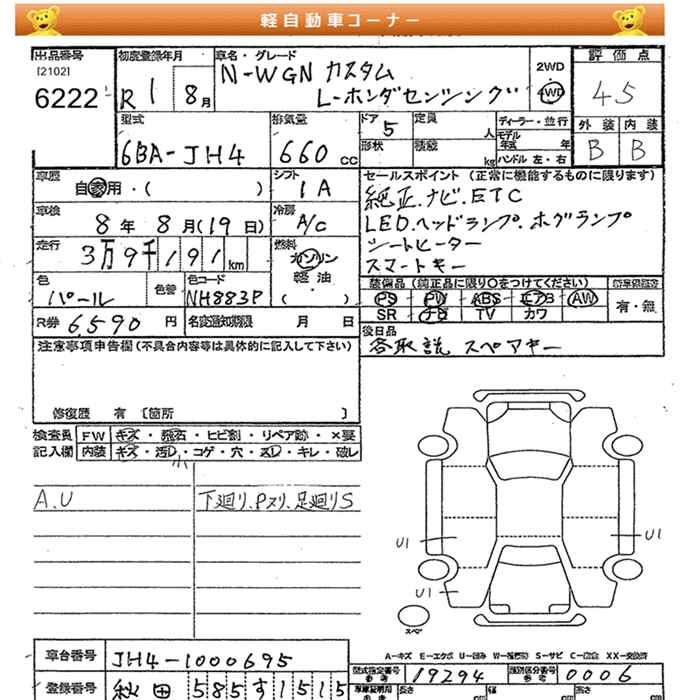 軽自動車コーナー
出品番号
[2102]
6222
初度登録年月
R 1 8月
車名・グレード
N-WGN カスタム
L-ホンダセンシング
2WD
4WD
評価点
4.5
外装 内装
B B
型式
6BA-JH4
排気量
660 cc
ドア 5
形状
定員 人
積載 kg
ディーラー・並行
モデル年式 年
ハンドル 左・右
車歴
自家用・( )
シフト
IA
車検
8年 8月(19日)
冷房
A/c
走行
3万9千191km
燃料
ガソリン
軽油
( )
色
パール
色替
色コード
NH883P
R券 6,590円
名変通知期限 月 日
セールスポイント (正常に機能するものに限ります)
純正.ナビ.ETC
LED.ヘッドランプ.ホグランプ
シートヒーター
スマートキー
装備品(純正品に限り○をつけてください)
PS PW ABS エアB AW
SR TV カワ
有・無
後日品
各取説 スペアキー
注意事項申告欄(不具合内容等は具体的に記入して下さい)
修復歴 有 [箇所 ]
検査員記入欄
FW キズ・飛石・ヒビ割・リペア跡・×要
内装 キズ・汚れ・コゲ・穴・スレ・キレ・破レ
小
A.U
下廻り.Pスリ.足廻りS
U1
U1
U1
スペア
A-キズ E-エクボ U-凹み W-補修跡 S-サビ C-腐食 XX-交換済
車台番号
JH4-1000695
登録番号
秋田 585 す 1515
型式指定番号
19294
類別区分番号
0006
長さ cm
幅 cm
高さ cm